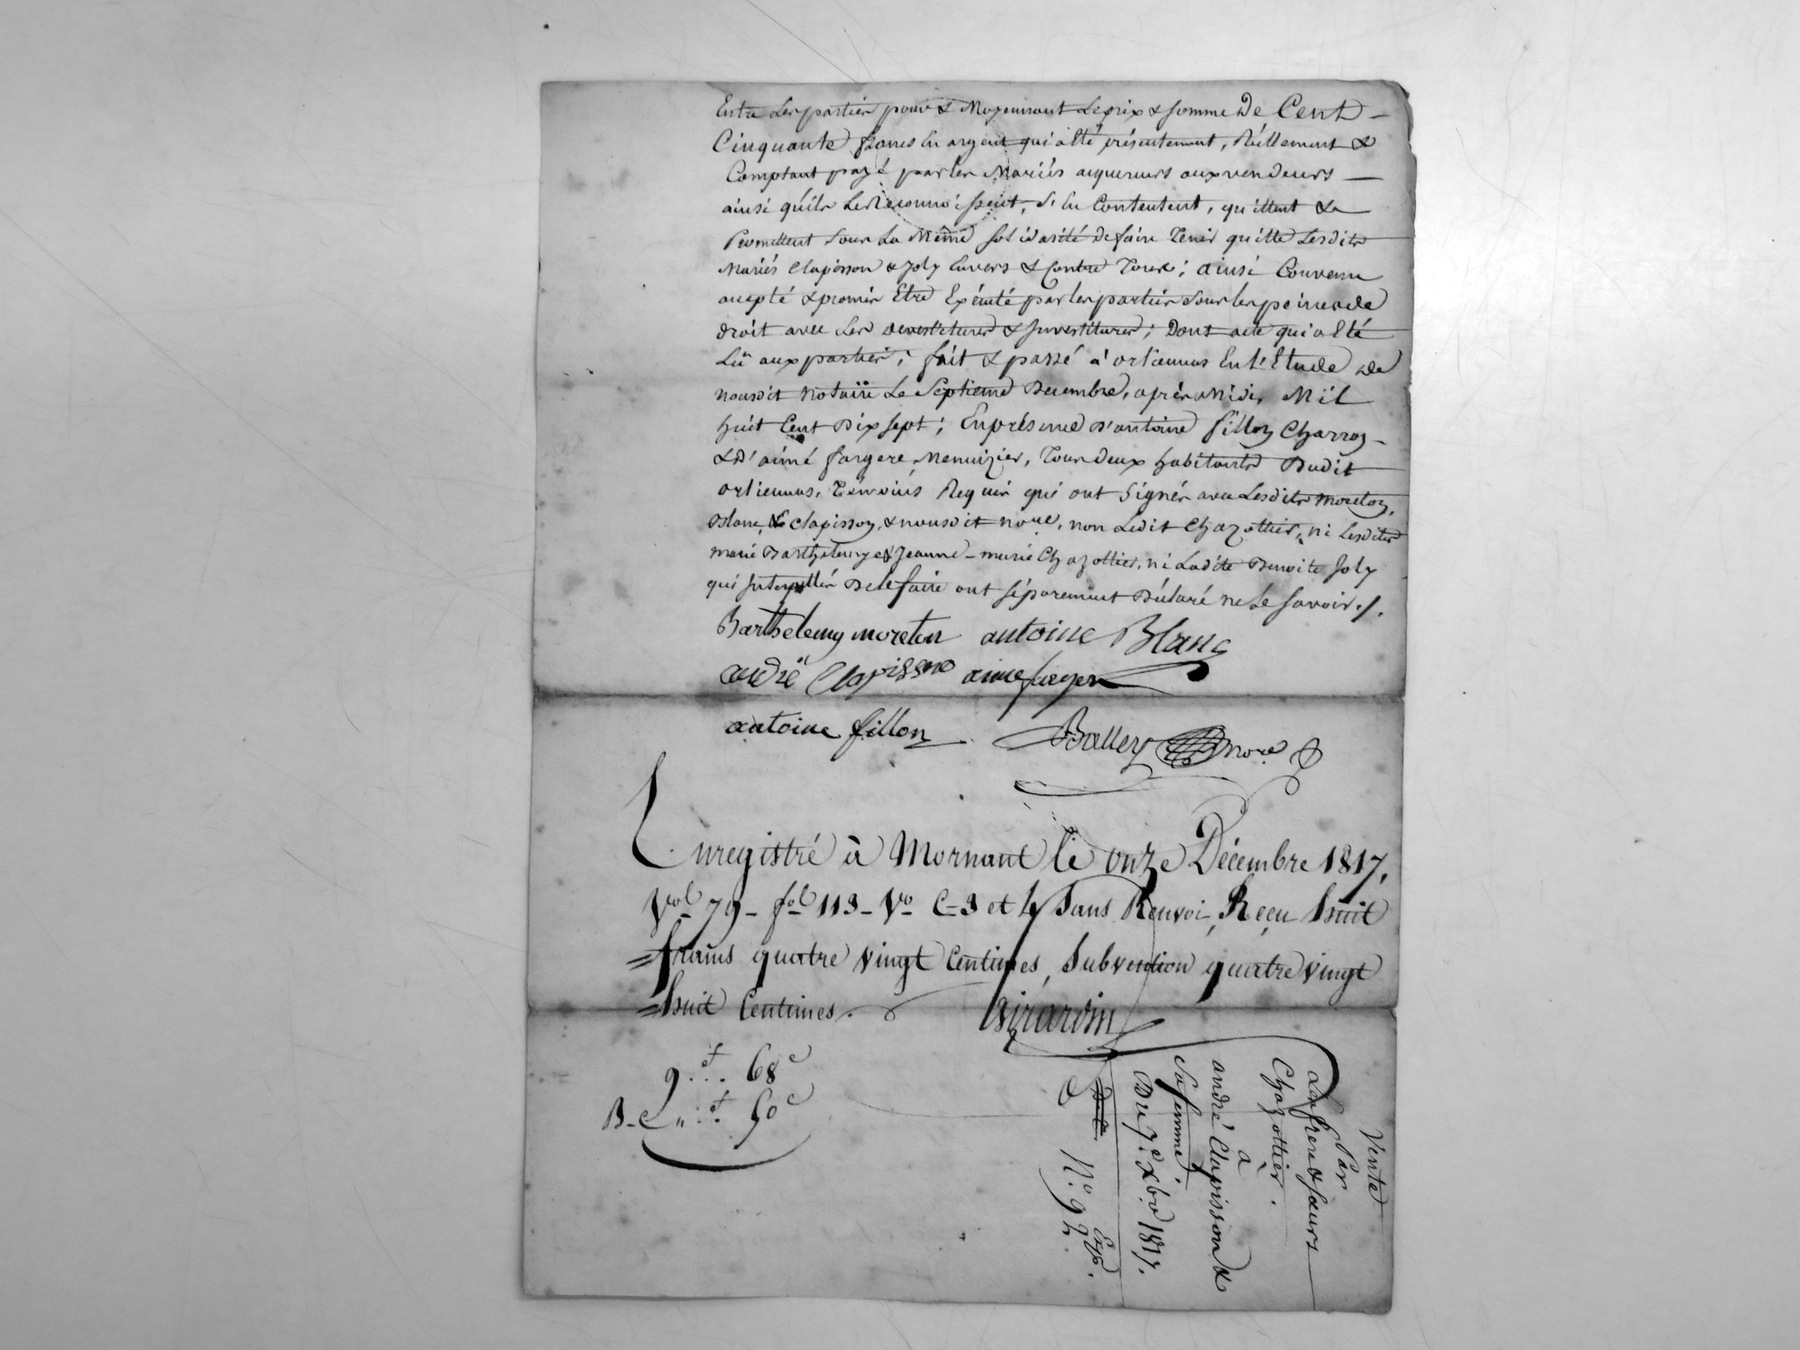 Entre les parties pour & Moyennant le prix & somme De Cent
Cinquante francs en argent qui a Eté présentement, Réellement &
Comptant payé par les Mariés aquereurs aux vendeurs
ainsi qu'ils le Reconnoissent, S'en Contentent, quittent &
Promettent sous La Même solidarité de faire Tenir quitte Lesdits
Mariés Clapisson & Joly Envers & Contre Tous ; ainsi Convenu
accepté & promis Etre Exécuté par les parties sous les peines de
droit avec Les devestitures & Investitures ; Dont acte qui a Eté
Lû aux parties ; fait & passé à orliennas En L'Etude de
nousdit Notaire Le Septieme Decembre, après Midi, Mil
huit Cent Dix sept ; En présence D'antoine fillon Charron
& D'aimé fargere Menuizier, Tous deux habitants Dudit
orliennas, Témoins Requis qui ont Signés avec Lesdits moreton,
Blanc, & Clapisson, & nousdit nore, non Ledit Chazottier, ni Lesdites
marie Barthelemye & Jeanne-marie Chazottier, ni Ladite Benoite Joly
qui Interpellés De le faire ont séparement Déclaré ne le savoir ./.
Barthelemy moreton antoine Blanc
andré Clapisson aime fargere
antoine fillon Balley nore
Enregistré à Mornant le onze Décembre 1817,
vol 79 - fol 113 - Vo C-3 et 4 Sans Renvoi, Reçu huit
=francs quatre vingt Centimes, Subvention quatre vingt
=huit Centimes.
Girardin
9 f. 68 c
B-e " f. 50 c
Vente
Par
Les frere & sœurs
Chazottier.
à
andré Clapisson &
Sa femme.
Du 7.e Xbre 1817.
Exp.
N.o 92.